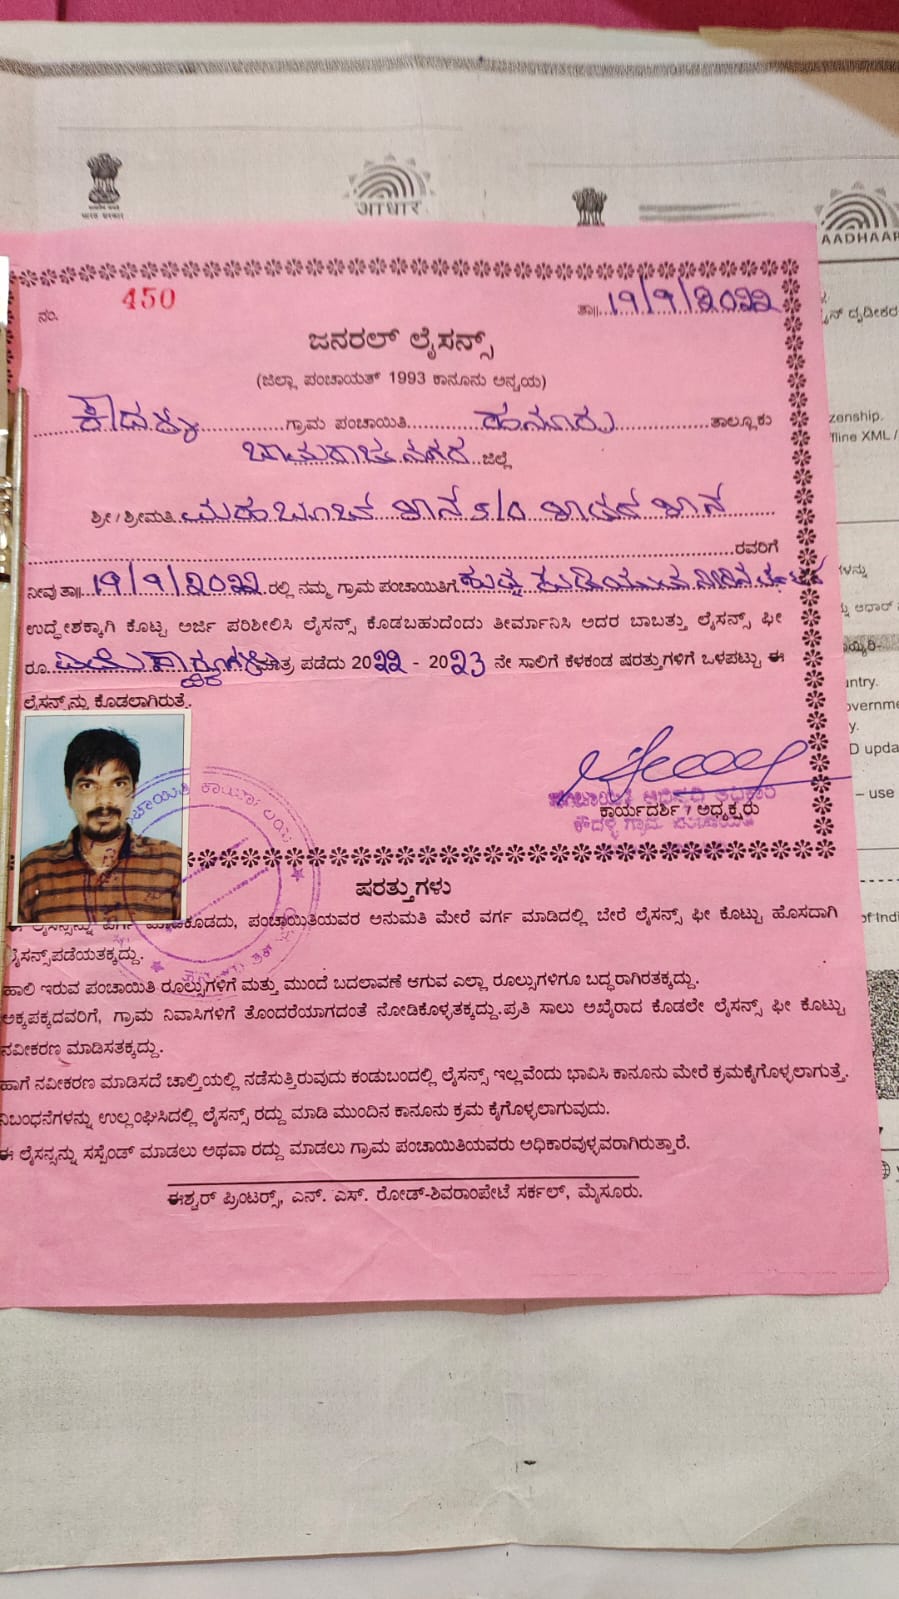 भारत सरकार
आधार
AADHAAR
ನಂ. 450
ತಾ॥ 19/9/2022
ಜನರಲ್ ಲೈಸನ್ಸ್
(ಜಿಲ್ಲಾ ಪಂಚಾಯತ್ 1993 ಕಾನೂನು ಅನ್ವಯ)
ಕೌದಳ್ಳಿ ಗ್ರಾಮ ಪಂಚಾಯಿತಿ ಹನೂರು ತಾಲ್ಲೂಕು
ಚಾಮರಾಜನಗರ ಜಿಲ್ಲೆ
ಶ್ರೀ / ಶ್ರೀಮತಿ ಮಹಬೂಬ್ ಖಾನ್ S/O ಖಾನ್
ರವರಿಗೆ
ನೀವು ತಾ॥ 19/9/2022 ರಲ್ಲಿ ನಮ್ಮ ಗ್ರಾಮ ಪಂಚಾಯಿತಿಗೆ ಶುದ್ಧ ಕುಡಿಯುವ ನೀರಿನ
ಉದ್ದೇಶಕ್ಕಾಗಿ ಕೊಟ್ಟ ಅರ್ಜಿ ಪರಿಶೀಲಿಸಿ ಲೈಸನ್ಸ್ ಕೊಡಬಹುದೆಂದು ತೀರ್ಮಾನಿಸಿ ಅದರ ಬಾಬತ್ತು ಲೈಸನ್ಸ್ ಫೀ
ರೂ. ಮಾತ್ರ ಪಡೆದು 2022 - 2023 ನೇ ಸಾಲಿಗೆ ಕೆಳಕಂಡ ಷರತ್ತುಗಳಿಗೆ ಒಳಪಟ್ಟು ಈ
ಲೈಸನ್ಸ್‌ನ್ನು ಕೊಡಲಾಗಿರುತ್ತೆ.
ಪಂಚಾಯಿತಿ ಅಭಿವೃದ್ಧಿ ಅಧಿಕಾರಿ
ಕಾರ್ಯದರ್ಶಿ / ಅಧ್ಯಕ್ಷರು
ಕೌದಳ್ಳಿ ಗ್ರಾಮ ಪಂಚಾಯಿತಿ
ಷರತ್ತುಗಳು
ಲೈಸನ್ಸನ್ನು ವರ್ಗ ಮಾಡಕೂಡದು, ಪಂಚಾಯಿತಿಯವರ ಅನುಮತಿ ಮೇರೆ ವರ್ಗ ಮಾಡಿದಲ್ಲಿ ಬೇರೆ ಲೈಸನ್ಸ್ ಫೀ ಕೊಟ್ಟು ಹೊಸದಾಗಿ
ಲೈಸನ್ಸ್‌ಪಡೆಯತಕ್ಕದ್ದು.
ಹಾಲಿ ಇರುವ ಪಂಚಾಯಿತಿ ರೂಲ್ಸುಗಳಿಗೆ ಮತ್ತು ಮುಂದೆ ಬದಲಾವಣೆ ಆಗುವ ಎಲ್ಲಾ ರೂಲ್ಸುಗಳಿಗೂ ಬದ್ಧರಾಗಿರತಕ್ಕದ್ದು.
ಅಕ್ಕಪಕ್ಕದವರಿಗೆ, ಗ್ರಾಮ ನಿವಾಸಿಗಳಿಗೆ ತೊಂದರೆಯಾಗದಂತೆ ನೋಡಿಕೊಳ್ಳತಕ್ಕದ್ದು.ಪ್ರತಿ ಸಾಲು ಅಖೈರಾದ ಕೂಡಲೇ ಲೈಸನ್ಸ್ ಫೀ ಕೊಟ್ಟು
ನವೀಕರಣ ಮಾಡಿಸತಕ್ಕದ್ದು.
ಹಾಗೆ ನವೀಕರಣ ಮಾಡಿಸದೆ ಚಾಲ್ತಿಯಲ್ಲಿ ನಡೆಸುತ್ತಿರುವುದು ಕಂಡುಬಂದಲ್ಲಿ ಲೈಸನ್ಸ್ ಇಲ್ಲವೆಂದು ಭಾವಿಸಿ ಕಾನೂನು ಮೇರೆ ಕ್ರಮಕೈಗೊಳ್ಳಲಾಗುತ್ತೆ.
ನಿಬಂಧನೆಗಳನ್ನು ಉಲ್ಲಂಘಿಸಿದಲ್ಲಿ ಲೈಸನ್ಸ್ ರದ್ದು ಮಾಡಿ ಮುಂದಿನ ಕಾನೂನು ಕ್ರಮ ಕೈಗೊಳ್ಳಲಾಗುವುದು.
ಈ ಲೈಸನ್ಸನ್ನು ಸಸ್ಪೆಂಡ್ ಮಾಡಲು ಅಥವಾ ರದ್ದು ಮಾಡಲು ಗ್ರಾಮ ಪಂಚಾಯಿತಿಯವರು ಅಧಿಕಾರವುಳ್ಳವರಾಗಿರುತ್ತಾರೆ.
ಈಶ್ವರ್ ಪ್ರಿಂಟರ್ಸ್, ಎನ್. ಎಸ್. ರೋಡ್-ಶಿವರಾಂಪೇಟೆ ಸರ್ಕಲ್, ಮೈಸೂರು.